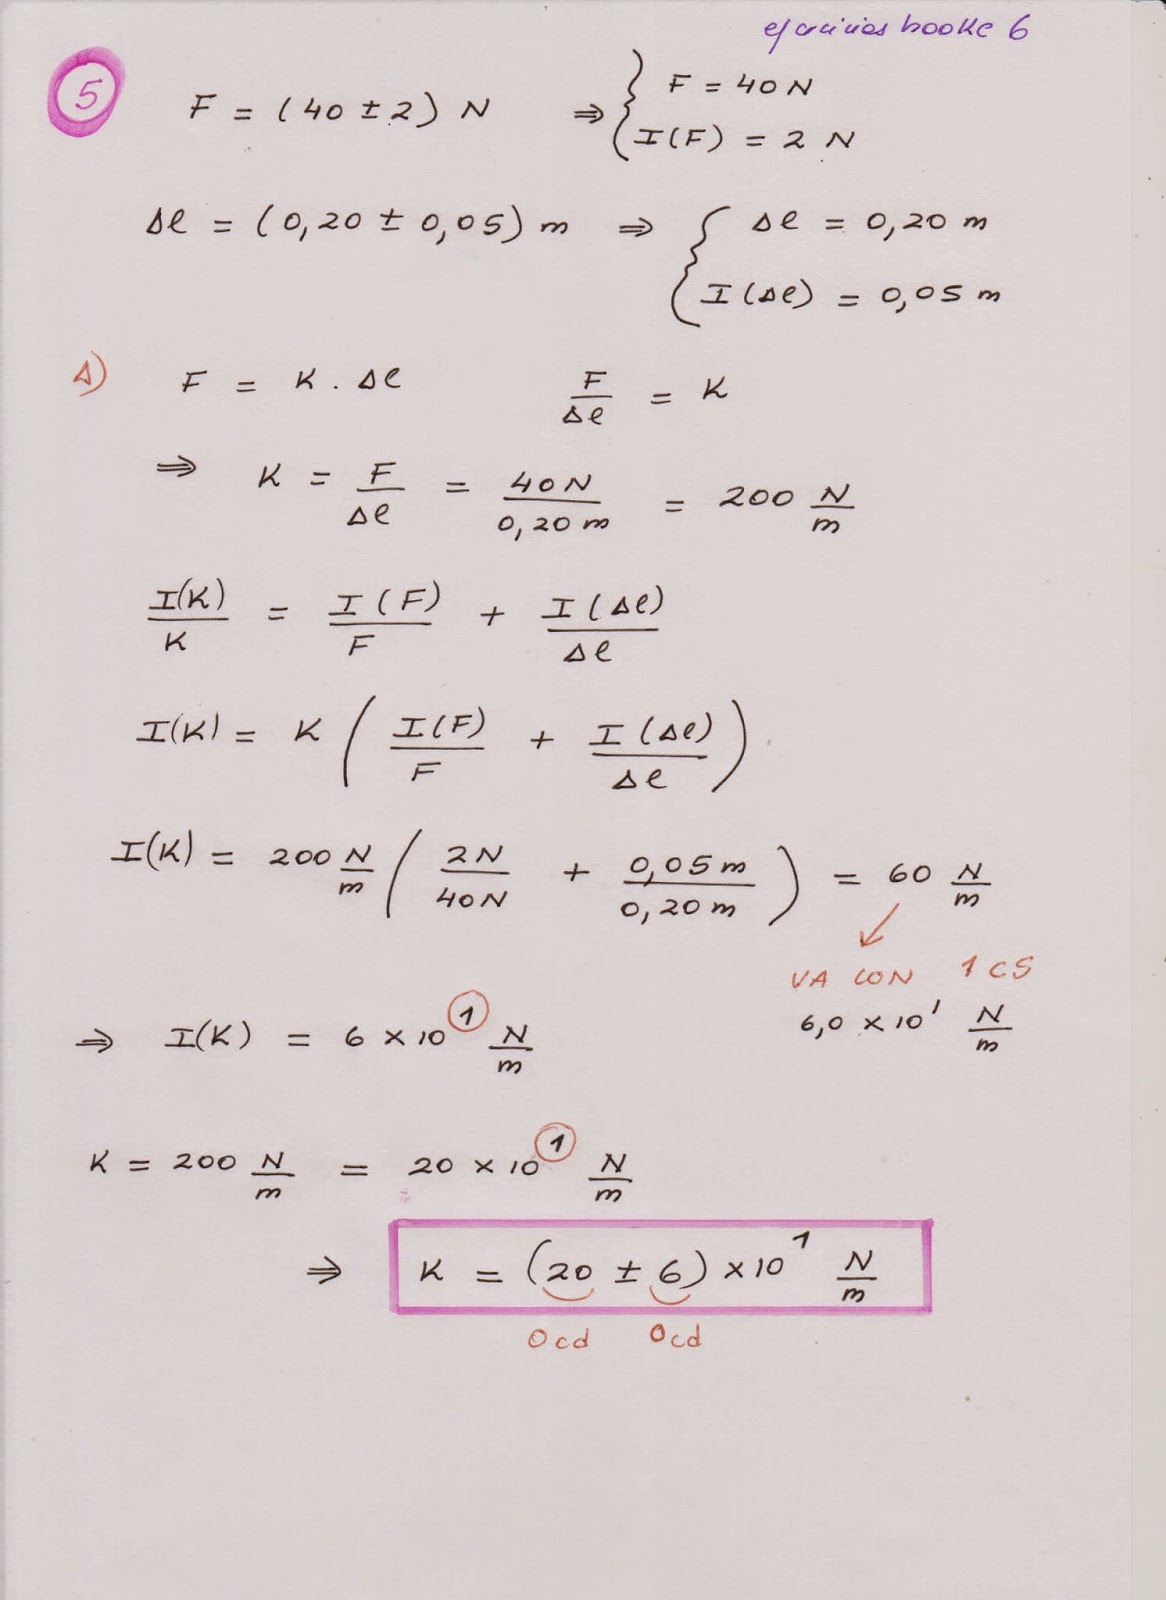 ejercicios hooke 6
5
F = (40 ± 2) N ⇒ { F = 40 N
I(F) = 2 N
Δl = (0,20 ± 0,05) m ⇒ { Δl = 0,20 m
I(Δl) = 0,05 m
Δ) F = K . Δl F/Δl = K
⇒ K = F/Δl = 40N/0,20 m = 200 N/m
I(K)/K = I(F)/F + I(Δl)/Δl
I(K) = K ( I(F)/F + I(Δl)/Δl )
I(K) = 200 N/m ( 2N/40N + 0,05 m/0,20 m ) = 60 N/m
VA CON 1 CS
6,0 × 10¹ N/m
⇒ I(K) = 6 × 10¹ N/m
K = 200 N/m = 20 × 10¹ N/m
⇒ K = (20 ± 6) × 10¹ N/m
0cd 0cd